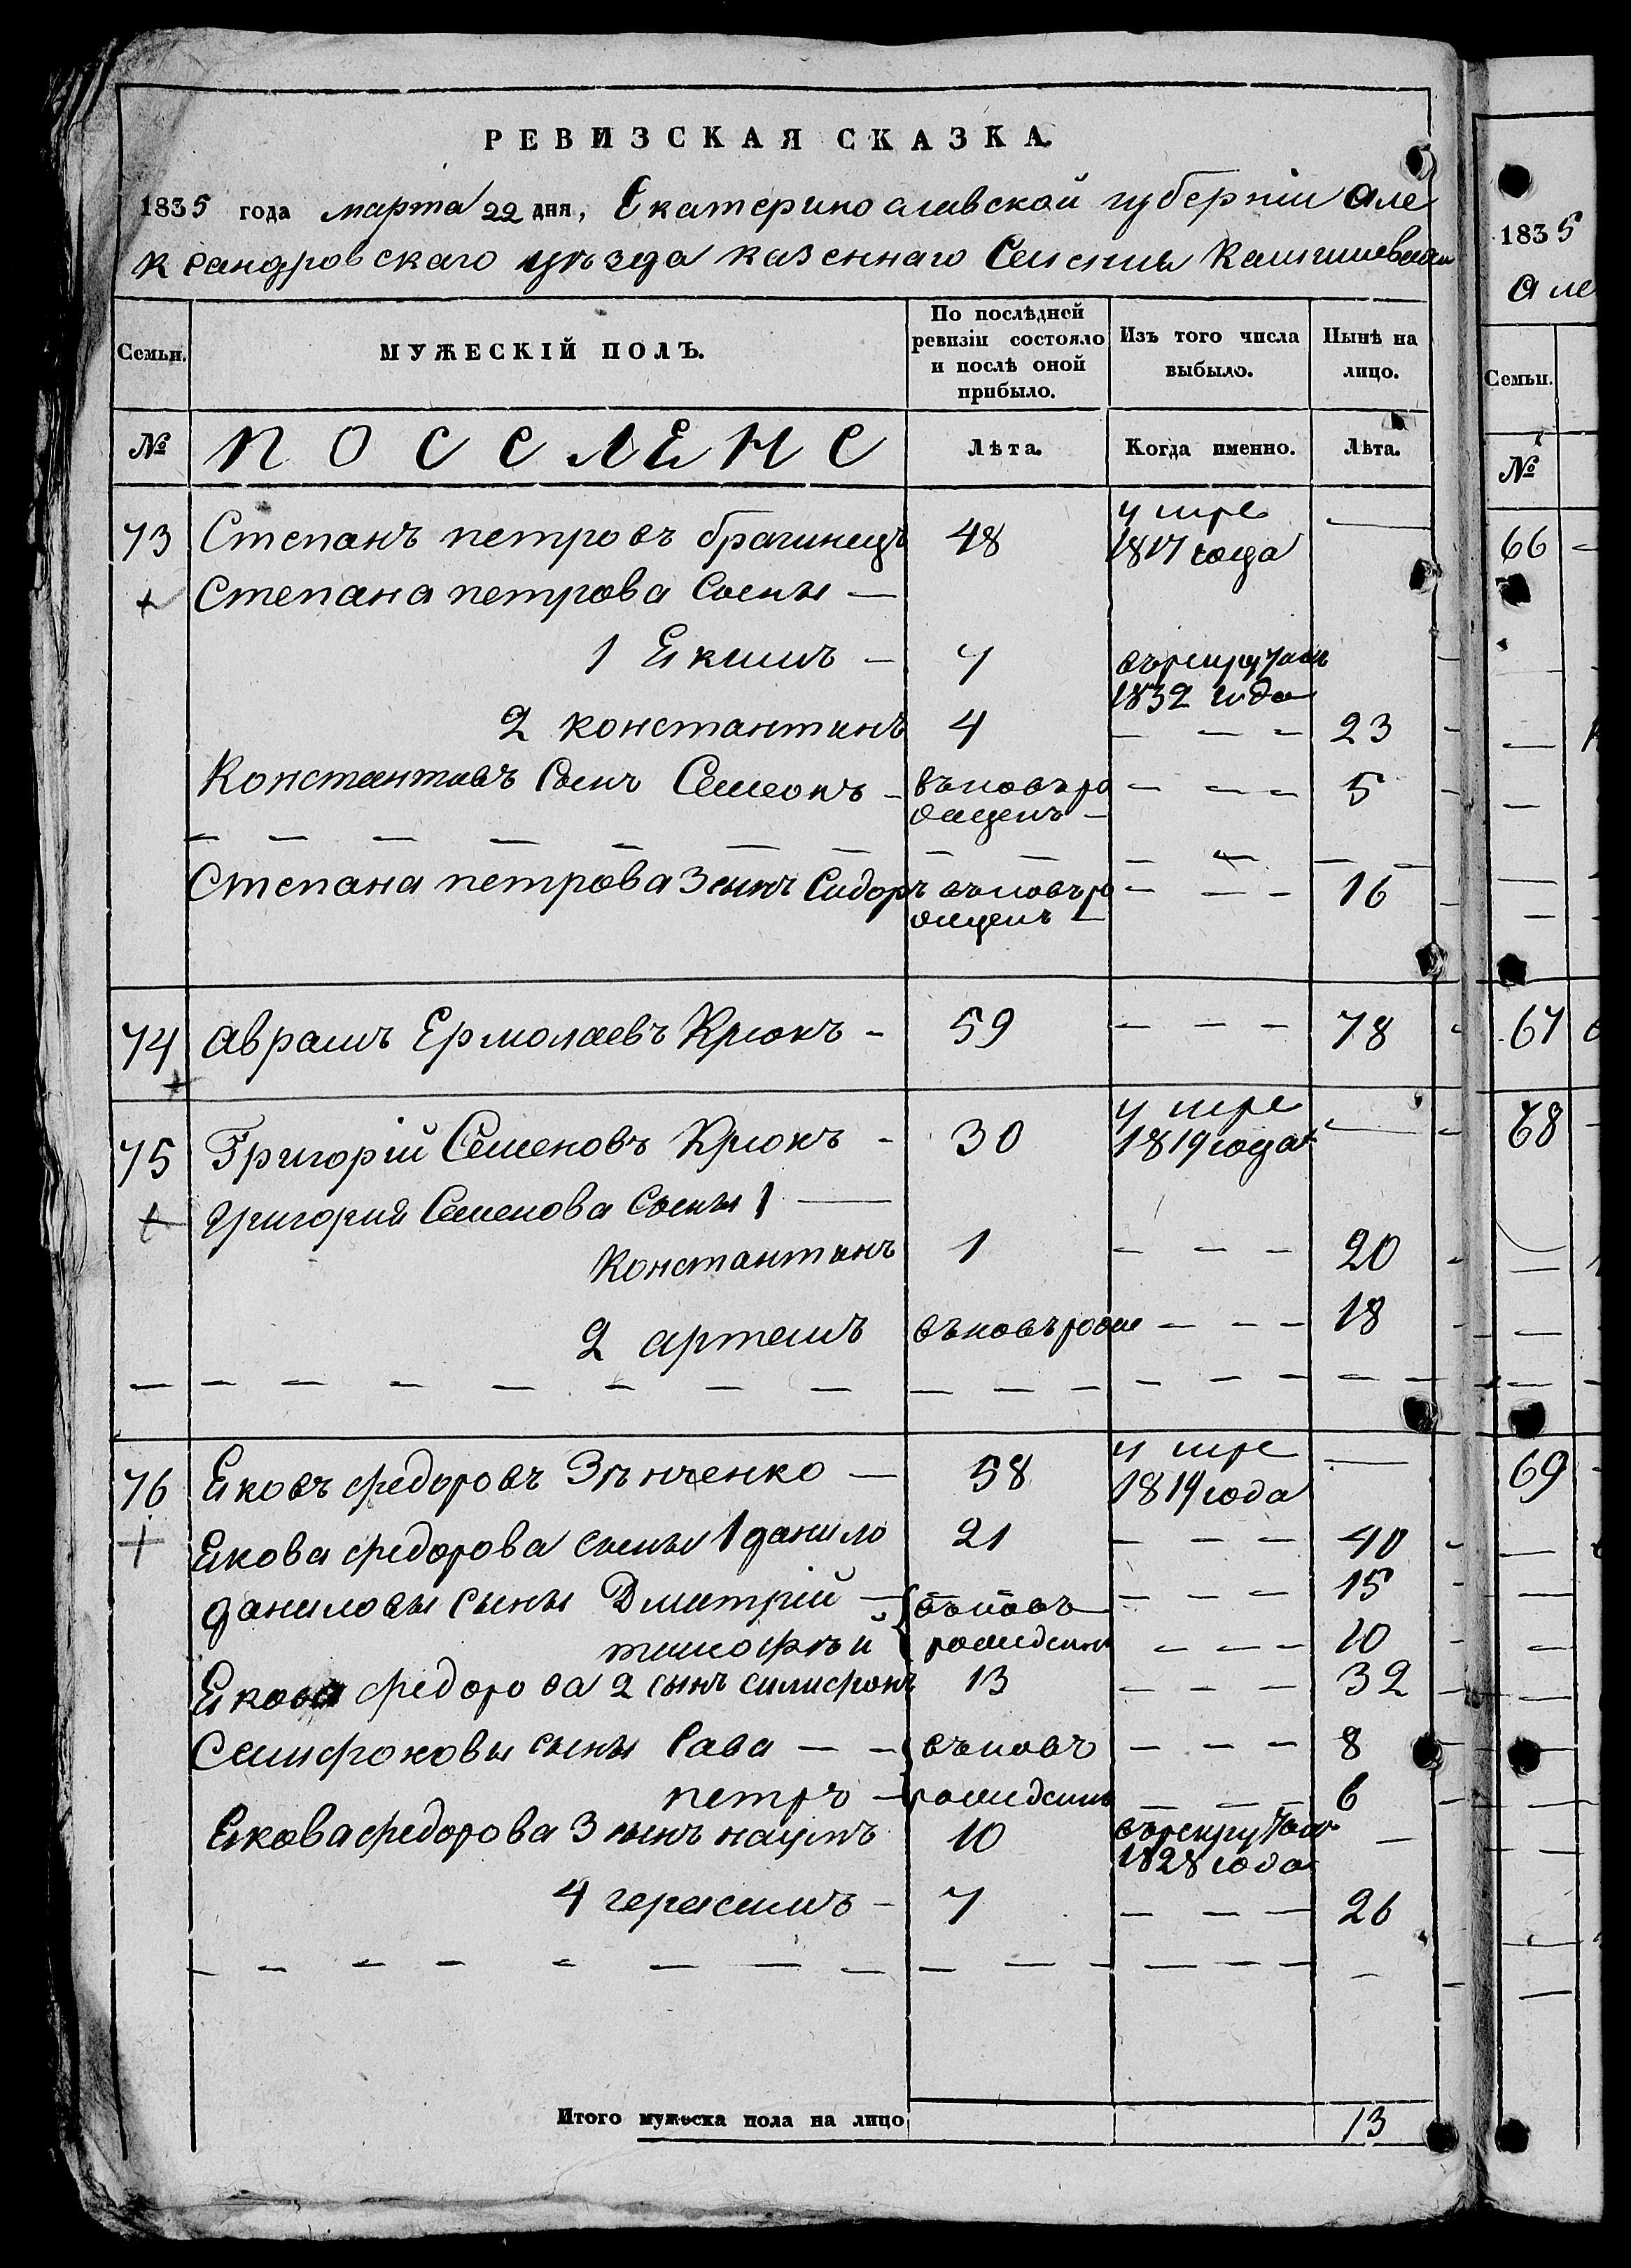 РЕВИЗСКАЯ СКАЗКА.
1835 года марта 22 дня, Екатеринославской губерніи Але
ксандровскаго уѣзда казеннаго Селенія
Семьи. МУЖЕСКІЙ ПОЛЪ. По послѣдней ревизіи состояло и послѣ оной прибыло. Изъ того числа выбыло. Нынѣ на лицо.
№ ПОССЕЛЕНЕ Лѣта. Когда именно. Лѣта.
73 Степанъ петровъ брагинецъ 48 умре 1817 года —
+ Степана петрова Сыны —
1 Екимъ — 7 въ рекрутахъ 1832 года
2 константинъ 4 — — — 23
Константиовъ Сынъ Семеонъ — въновь ро жденъ — — — — 5
Степана петрова 3 сынъ Сидоръ въновь ро жденъ — — — — 16
74 аврамъ Ермолаевъ Крюкъ — 59 — — — 78
+
75 Григорій Семеновъ Крюкъ - 30 умре 1819 года —
+ григорія Семенова Сыны 1 —
Константинъ 1 — — — 20
2 артемъ въновь рож — — — 18
76 Яковъ федоровъ Зѣнченко — 58 умре 1819 года —
+ Якова федорова сыны 1 данило 21 — — — 40
даниловы сыны Дмитрій — { въновь — — — 15
тимофѣй рожденн — — — 10
Якова федорова 2 сынъ силифонъ 13 — — — 32
Силифоновы сыны Сава — — въновь — — — 8
петръ — рожденн — — — 6
Якова федорова 3 сынъ наумъ 10 въ рекрутахъ 1828 года —
4 герасимъ — 7 — — — 26
Итого мужеска пола на лицо 13
1835
Але
Семьи.
№
66
67
68
69